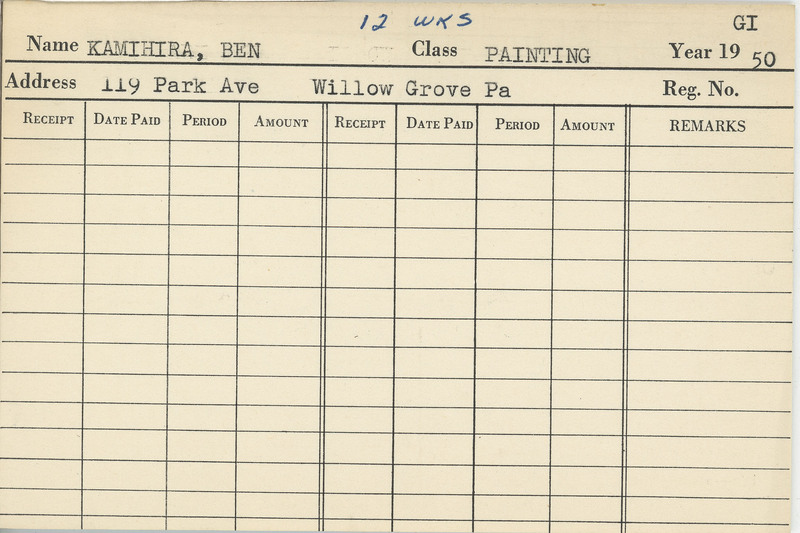 12 WKS GI
Name KAMIHIRA, BEN Class PAINTING Year 19 50
Address 119 Park Ave Willow Grove Pa Reg. No.
RECEIPT DATE PAID PERIOD AMOUNT RECEIPT DATE PAID PERIOD AMOUNT REMARKS